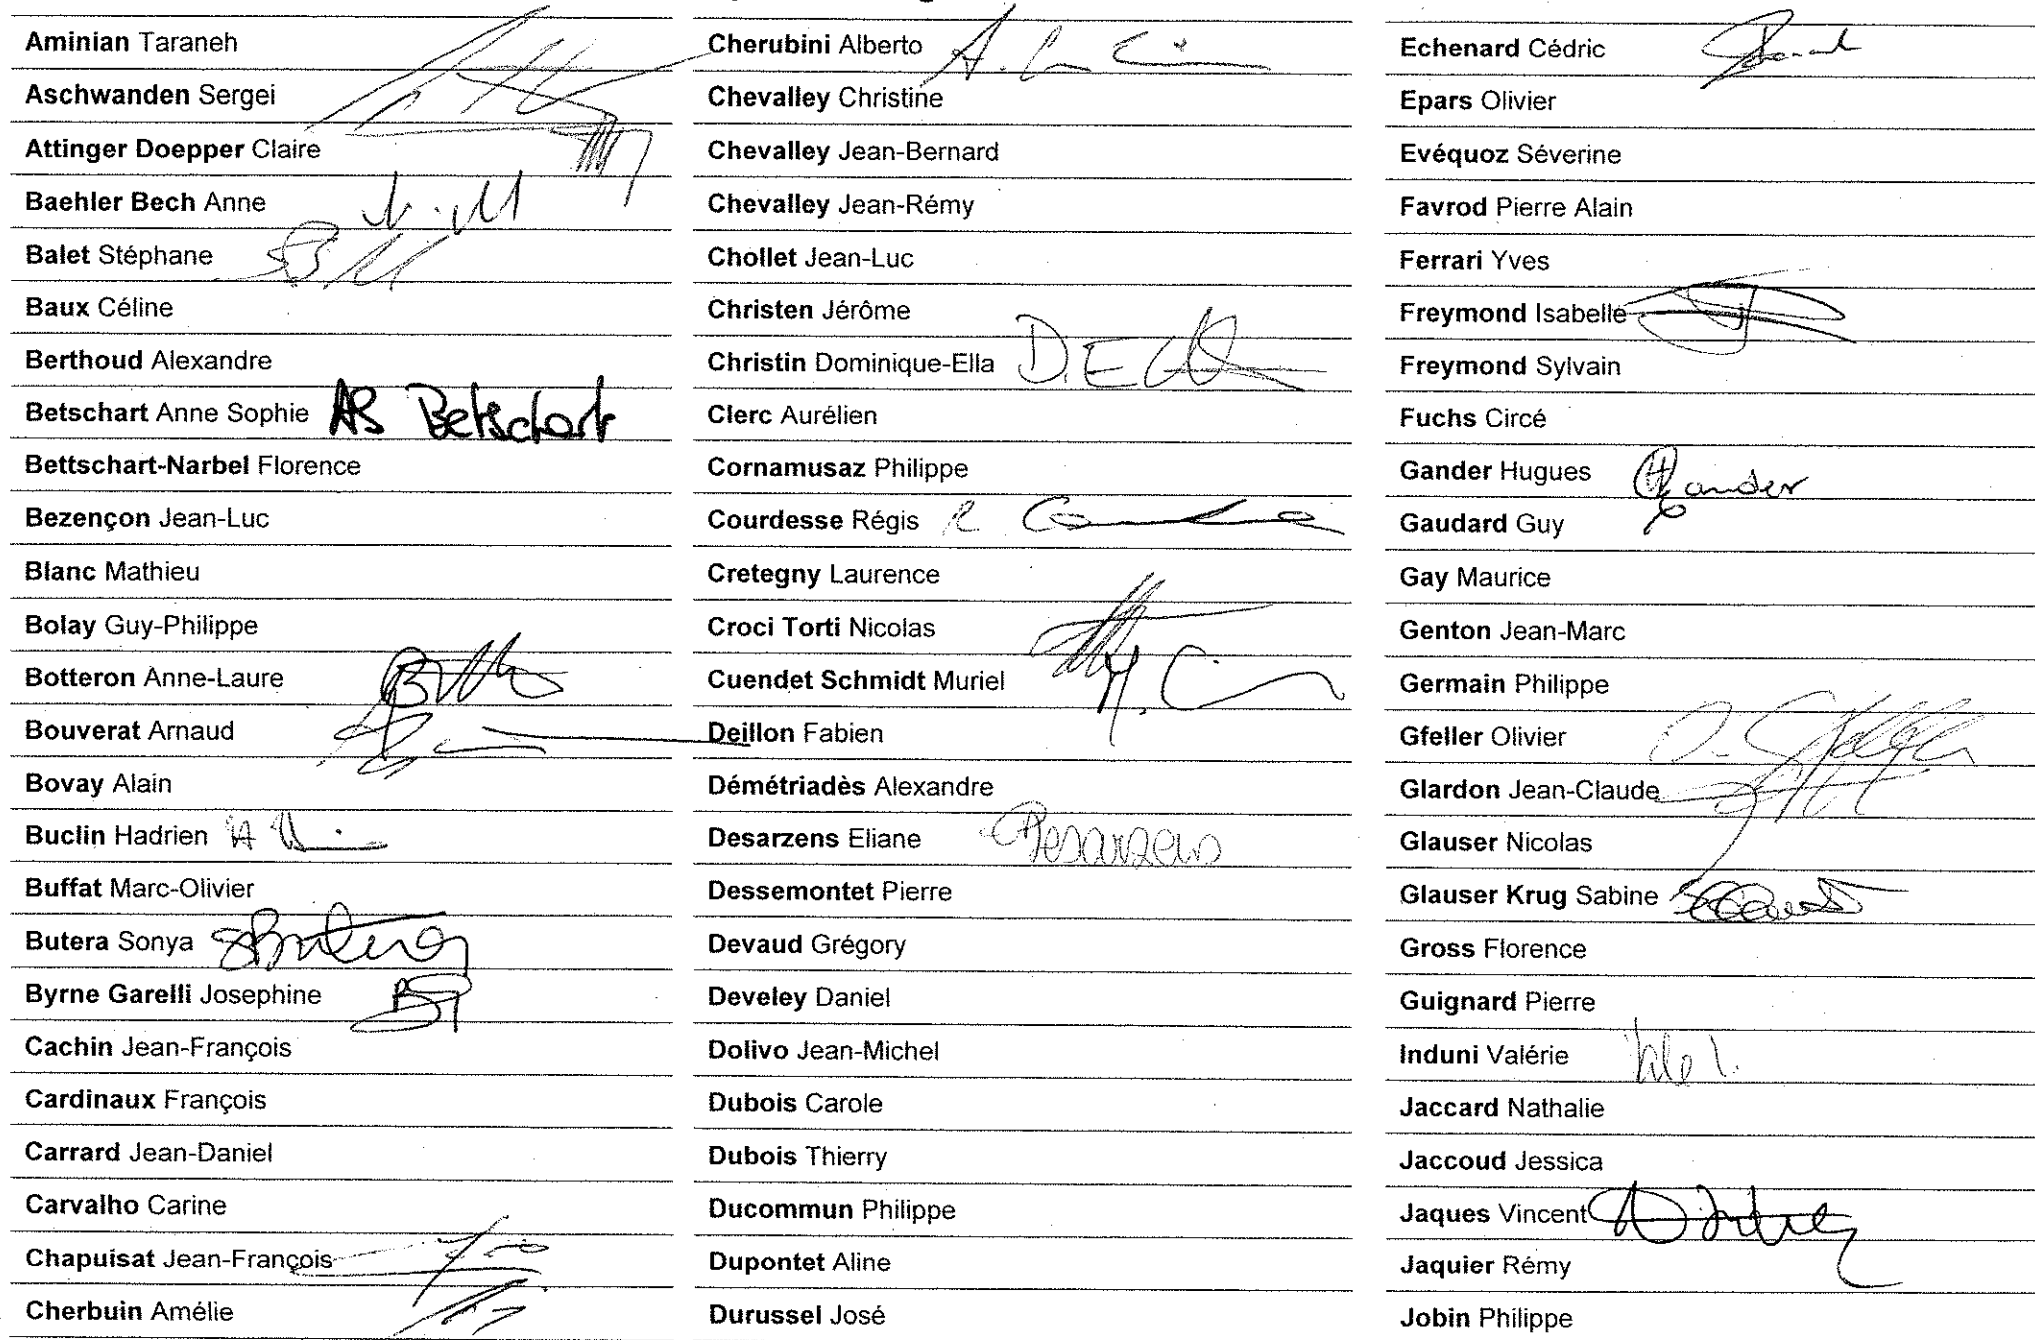 Aminian Taraneh
Aschwanden Sergei
Attinger Doepper Claire
Baehler Bech Anne
Balet Stéphane
Baux Céline
Berthoud Alexandre
Betschart Anne Sophie AS Betschart
Bettschart-Narbel Florence
Bezençon Jean-Luc
Blanc Mathieu
Bolay Guy-Philippe
Botteron Anne-Laure
Bouverat Arnaud
Bovay Alain
Buclin Hadrien
Buffat Marc-Olivier
Butera Sonya SButera
Byrne Garelli Josephine
Cachin Jean-François
Cardinaux François
Carrard Jean-Daniel
Carvalho Carine
Chapuisat Jean-François
Cherbuin Amélie
Cherubini Alberto
Chevalley Christine
Chevalley Jean-Bernard
Chevalley Jean-Rémy
Chollet Jean-Luc
Christen Jérôme
Christin Dominique-Ella
Clerc Aurélien
Cornamusaz Philippe
Courdesse Régis
Cretegny Laurence
Croci Torti Nicolas
Cuendet Schmidt Muriel
Deillon Fabien
Démétriadès Alexandre
Desarzens Eliane Desarzens
Dessemontet Pierre
Devaud Grégory
Develey Daniel
Dolivo Jean-Michel
Dubois Carole
Dubois Thierry
Ducommun Philippe
Dupontet Aline
Durussel José
Echenard Cédric
Epars Olivier
Evéquoz Séverine
Favrod Pierre Alain
Ferrari Yves
Freymond Isabelle
Freymond Sylvain
Fuchs Circé
Gander Hugues Gander
Gaudard Guy
Gay Maurice
Genton Jean-Marc
Germain Philippe
Gfeller Olivier
Glardon Jean-Claude
Glauser Nicolas
Glauser Krug Sabine
Gross Florence
Guignard Pierre
Induni Valérie
Jaccard Nathalie
Jaccoud Jessica
Jaques Vincent
Jaquier Rémy
Jobin Philippe